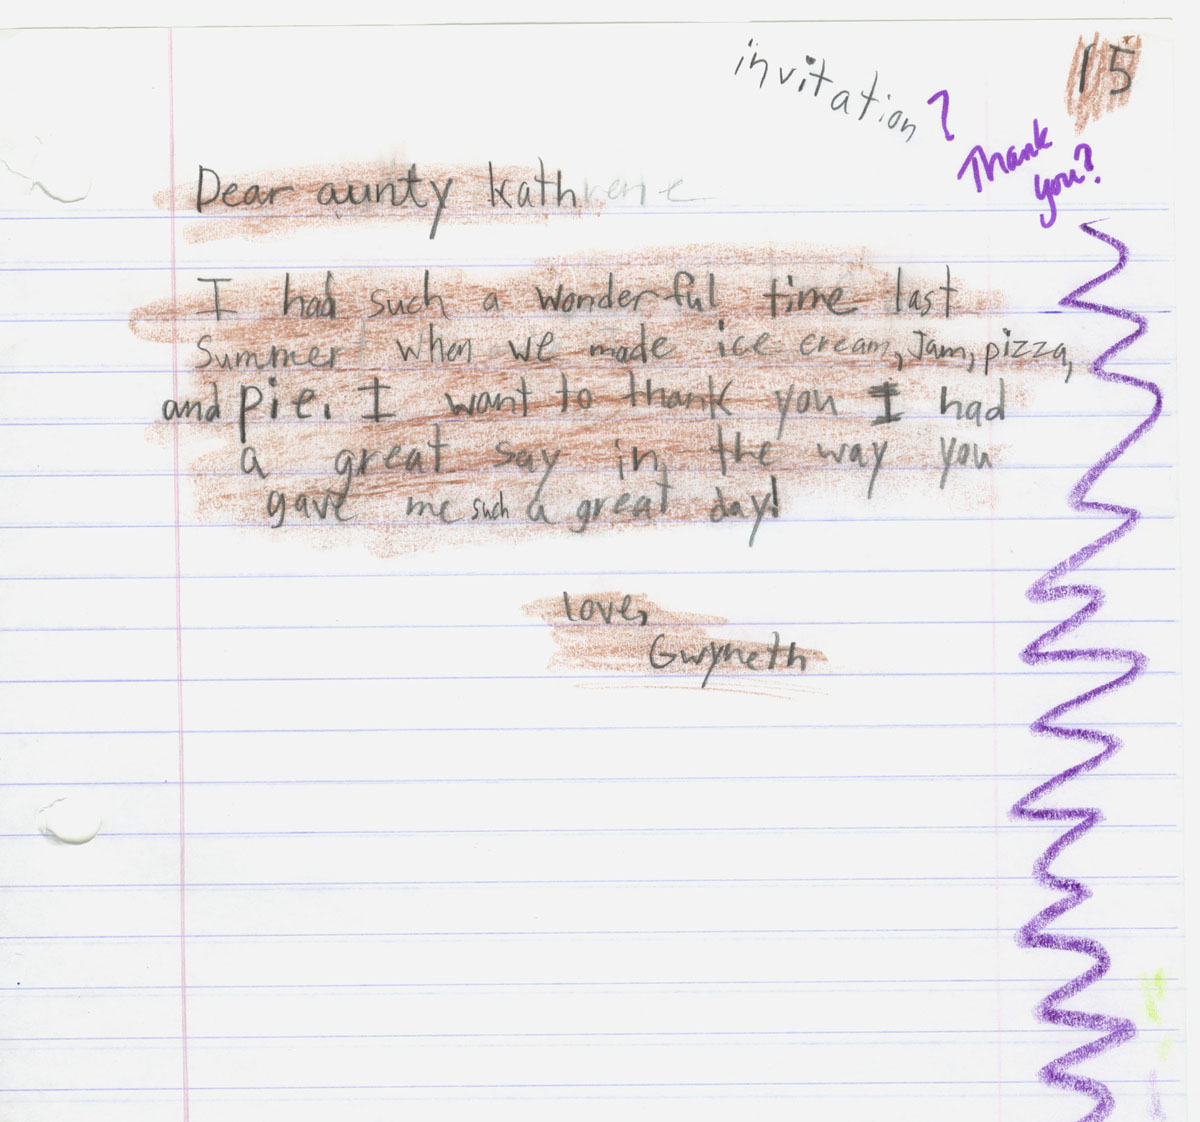 15
invitation ?
Thank
you?
Dear aunty Kathrene
I had such a wonderful time last
Summer when we made ice cream, Jam, pizza,
and pie. I want to thank you I had
a great say in the way you
gave me such a great day!
love,
Gwyneth